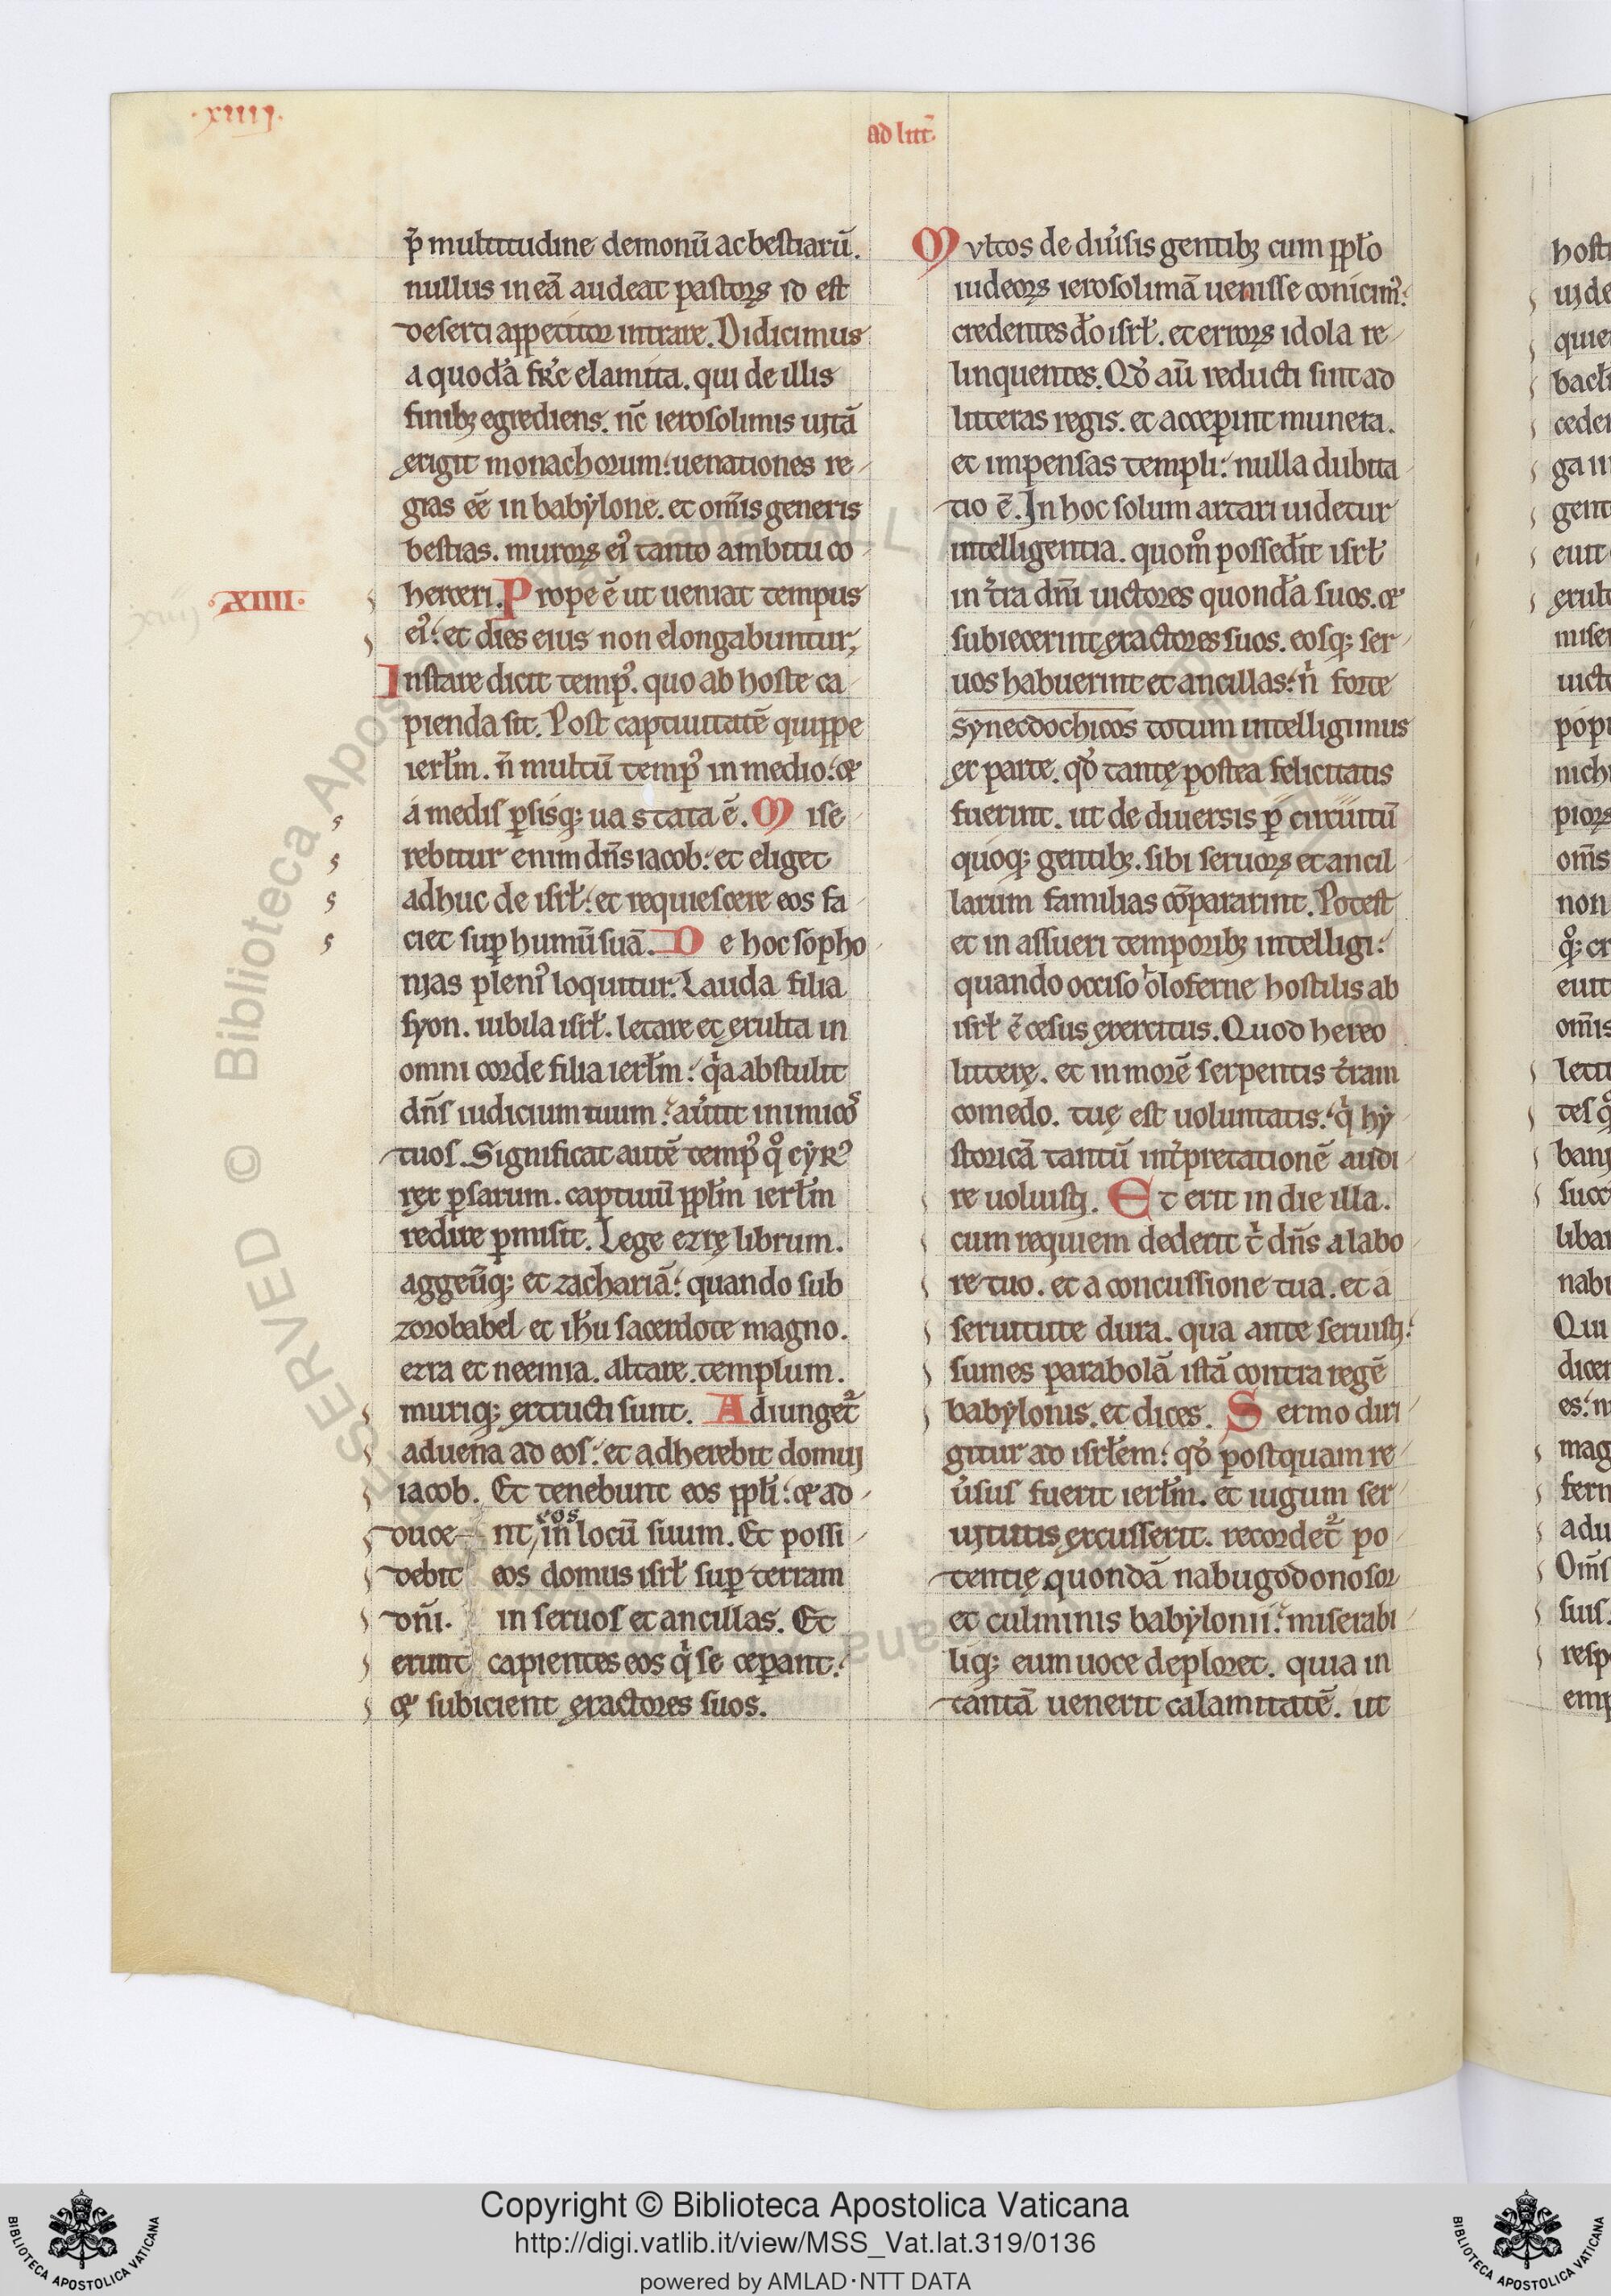 ·xiiij·
ad litt̄
p̄ multitudine demonū ac bestiarū.
nullus in eā audeat pastoꝝ id est
deserti appetitor intrare. Didicimus
a quodā fr̄e elamita. qui de illis
finibꝫ egrediens. nc̄ ierosolimis uitā
exigit monachorum: uenationes re
gias eē in babẏlone. et om̄is generis
bestias. muroꝝ eiꝰ tanto ambitu co
herceri. Prope ē ut ueniat tempus
·XIIII·
eiꝰ: et dies eius non elongabuntur;
Instare dicit tempꝰ. quo ab hoste ca
pienda sit. Post captiuitatē quippe
ierłm. n̄ multū tempꝰ in medio: ⁊
a medis ꝑsisqꝫ uastata ē. Mise
rebitur enim dn̄s iacob: et eliget
adhuc de isrł: et requiescere eos fa
ciet suꝑ humū suā. De hoc sopho
nias pleniꝰ loquitur. Lauda filia
syon. iubila isrł. letare et exulta in
omni corde filia ierłm: qͥa abstulit
dn̄s iudicium tuum: au̓tit inimicoˢ
tuos. Significat autē tempꝰ qͦ cẏrꝰ
rex ꝑsarum. captiuū ppłm ierłm
redire ꝑmisit. Lege ezrę librum.
aggeūqꝫ et zachariā: quando sub
zorobabel et ih̄u sacerdote magno.
ezra et neemia. altare. templum.
muriqꝫ extructi sunt. Adiunget᷑
aduena ad eos: et adherebit domui
iacob. Et tenebunt eos ppłi: ⁊ ad
eos
duce nt, in locū suum. Et possi
debit eos domus isrł suꝑ terram
dn̄i. in seruos et ancillas. Et
erunt capientes eos qͥ se ceꝑant:
⁊ subicient exactores suos.
Multos de diu̓sis gentibꝫ cum ppło
iudeoꝝ ierosolimā uenisse conicimꝰ:
credentes dō isrł. et erroꝝ idola re
linquentes. Qd̓ aū reducti sint ad
litteras regis. et acceꝑint munera.
et impensas templi: nulla dubita
tio ē. In hoc solum artari uidetur
intelligentia. quom̊ possedit̄ isrł
in tr̄a dn̄i uictores quondā suos. ⁊
subiecerint exactores suos. eosqꝫ ser
uos habuerint et ancillas: n̄ forte
synecdochicos totum intelligimus
ex parte. qd̓ tantę postea felicitatis
fuerint. ut de diuersis ꝑ circūitū
quoqꝫ gentibꝫ. sibi seruoꝝ et ancil
larum familias cōpararint. Potest
et in assueri temporibꝫ intelligi:
quando occiso oloferne hostilis ab
isrł ē cesus exercitus. Quod hereo
litterę. et in morē serpentis tr̄am
comedo. tuę est uoluntatis: qͥ hẏ
storicā tantū int̓pretationē audi
re uoluisti. Et erit in die illa.
cum requiem dederit tͥ dn̄s a labo
re tuo. et a concussione tua. et a
seruitute dura. qua ante seruisti:
sumes parabolā istā contra regē
babẏlonis. et dices. Sermo diri
gitur ad isrłem: qd̓ postquam re
u̓sus fuerit ierłm. et iugum ser
uitutis excusserit. recordet᷑ po
tentię quondā nabugodonosor
et culminis babẏlonii: miserabi
liqꝫ eum uoce deploret. quia in
tantā uenerit calamitatē. ut
Copyright © Biblioteca Apostolica Vaticana
http://digi.vatlib.it/view/MSS_Vat.lat.319/0136
powered by AMLAD·NTT DATA